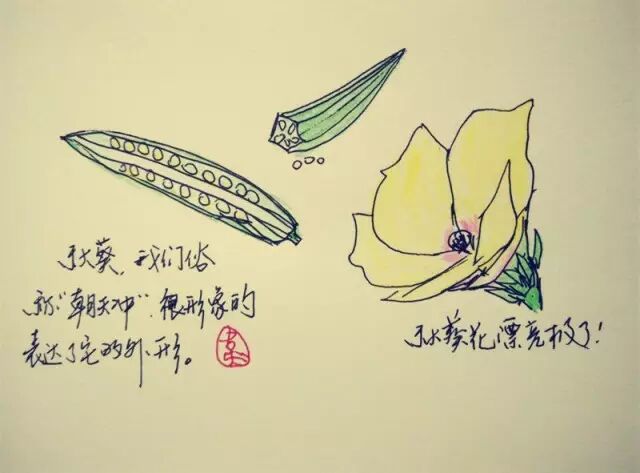 秋葵，我们俗
称"朝天冲"，很形象的
表达了它的外形。
秋葵花漂亮极了！